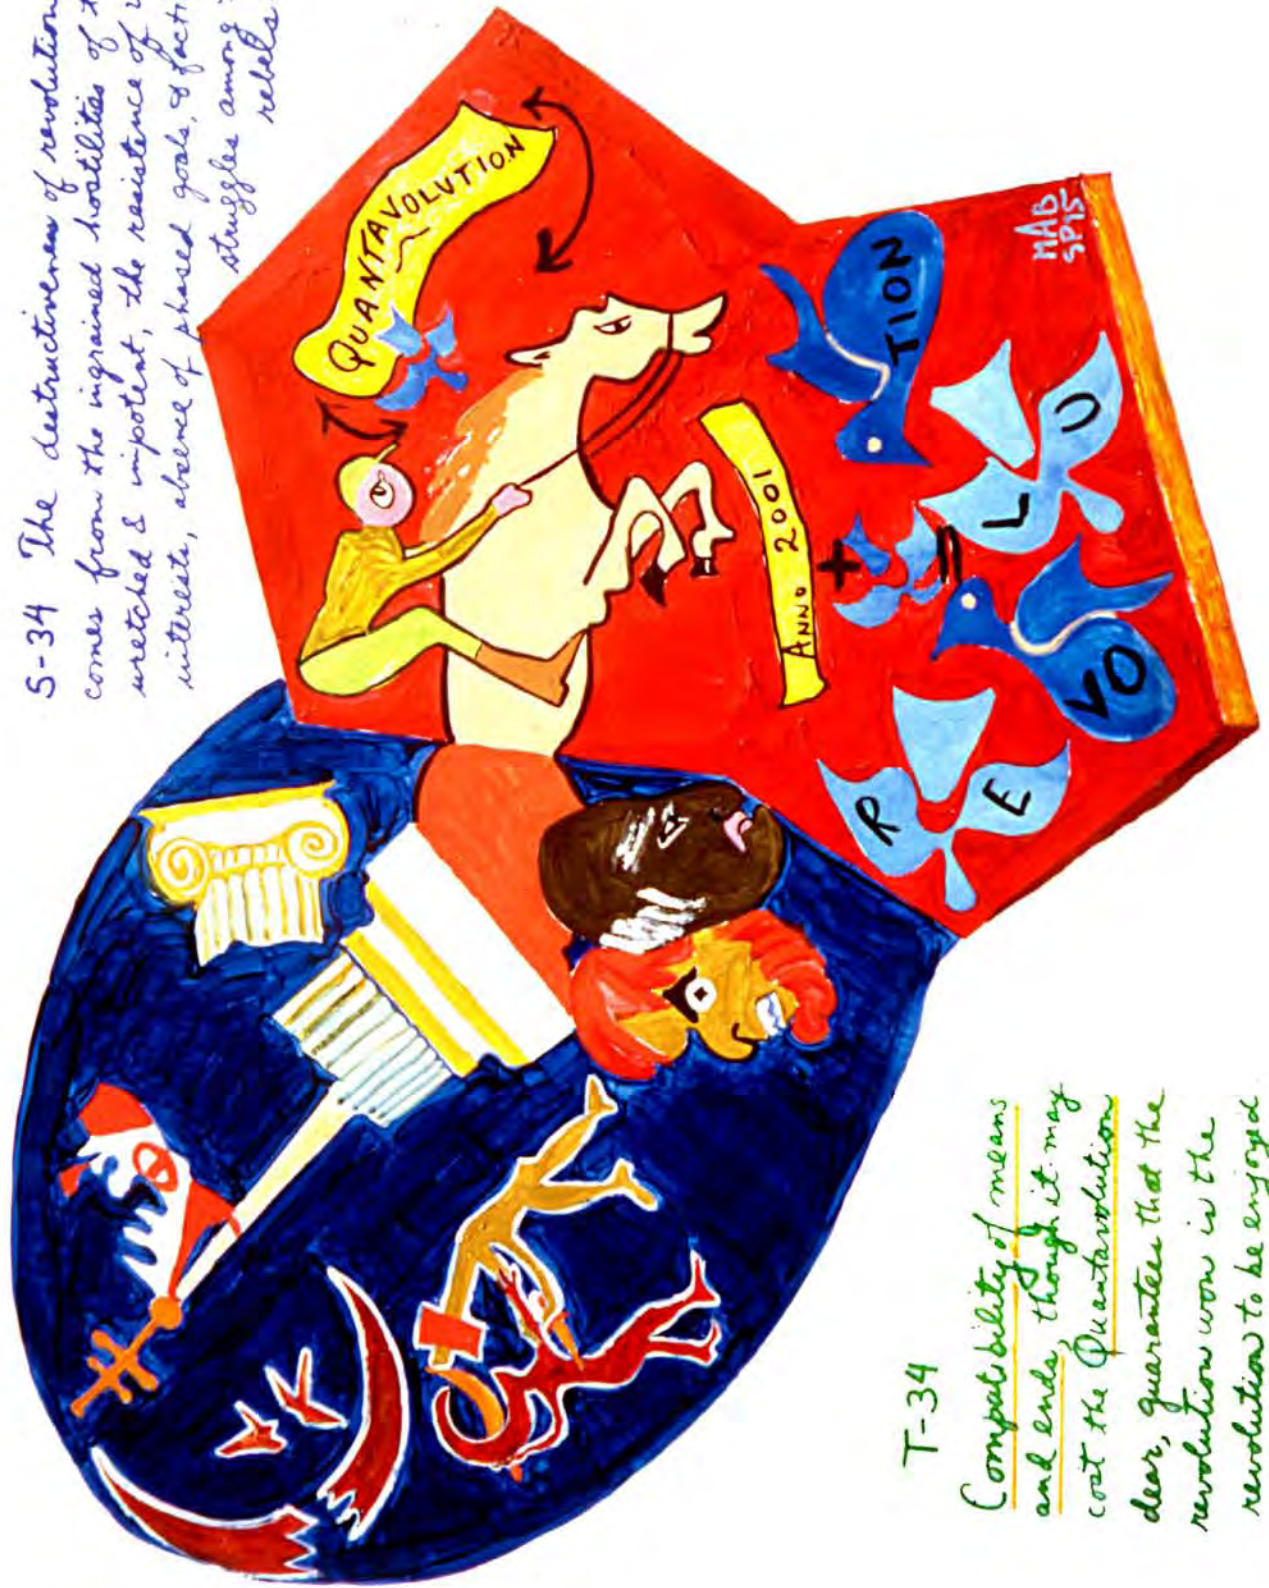 S-34 The destructiveness of revolution
comes from the ingrained hostilities of
wretched & impotent, the resistence of
interests, absence of phased goals, &
struggles among
rebels
QUANTAVOLUTION
ANNO 2001
+
=
R E VO L U TION
MAB
SP95
T-34
Compatability of means
and ends, though it may
cost the Quantavolution
dear, guarantees that the
revolution won is the
revolution to be enjoyed